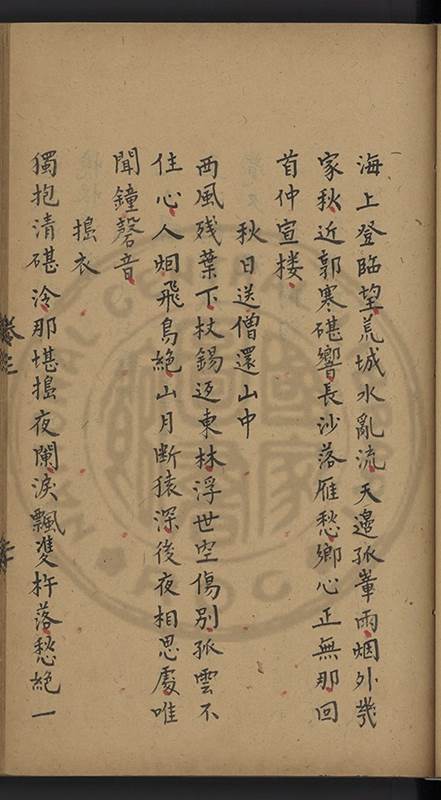 海上登臨望荒城水亂流天邊孤峯雨烟外幾
家秋近郭寒碪響長沙落雁愁鄉心正無那回
首仲宣樓
秋日送僧還山中
西風残葉下杖錫返東林浮世空傷別孤雲不
住心人烟飛鳥絶山月断猿深後夜相思處唯
聞鐘磬音
搗衣
獨抱清碪冷那堪搗夜闌淚飄雙杵落愁絶一
卷三